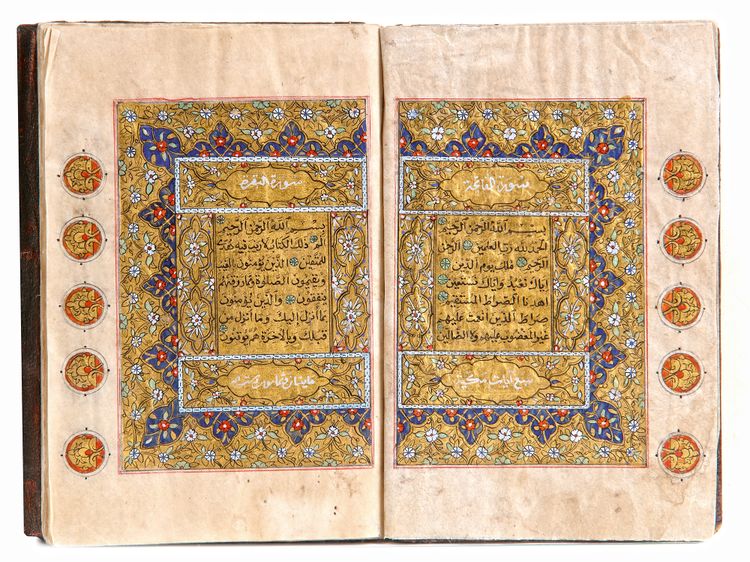 سورة الفاتحة
بسم الله الرحمن الرحيم
الحمد لله رب العالمين الرحمن
الرحيم ملك يوم الدين
اياك نعبد واياك نستعين
اهدنا الصراط المستقيم
صراط الذين انعمت عليهم
غير المغضوب عليهم ولا الضالين
سبع ايات مكية
سورة البقرة
بسم الله الرحمن الرحيم
الم ذلك الكتاب لا ريب فيه هدى
للمتقين الذين يؤمنون بالغيب
ويقيمون الصلوة ومما رزقناهم
ينفقون والذين يؤمنون
بما انزل اليك وما انزل من
قبلك وبالاخرة هم يوقنون